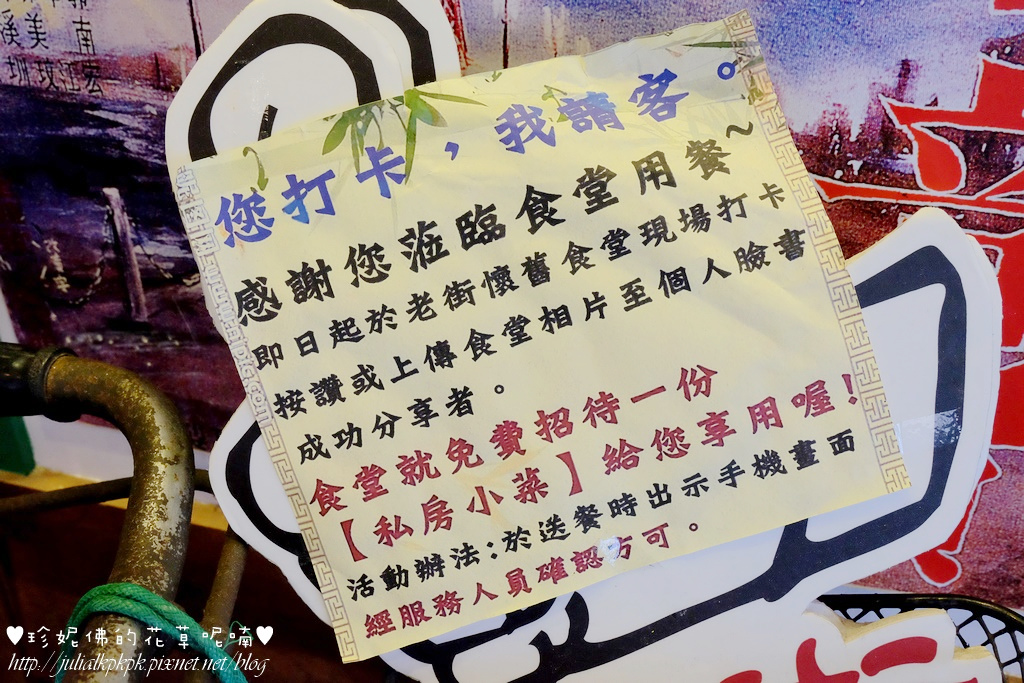 您打卡，我請客。
感謝您蒞臨食堂用餐~
即日起於老街懷舊食堂現場打卡
按讚或上傳食堂相片至個人臉書
成功分享者。
食堂就免費招待一份
【私房小菜】給您享用喔!
活動辦法:於送餐時出示手機畫面
經服務人員確認方可。
♥珍妮佛的花草呢喃♥
http://julialkpkpk.pixnet.net/blog